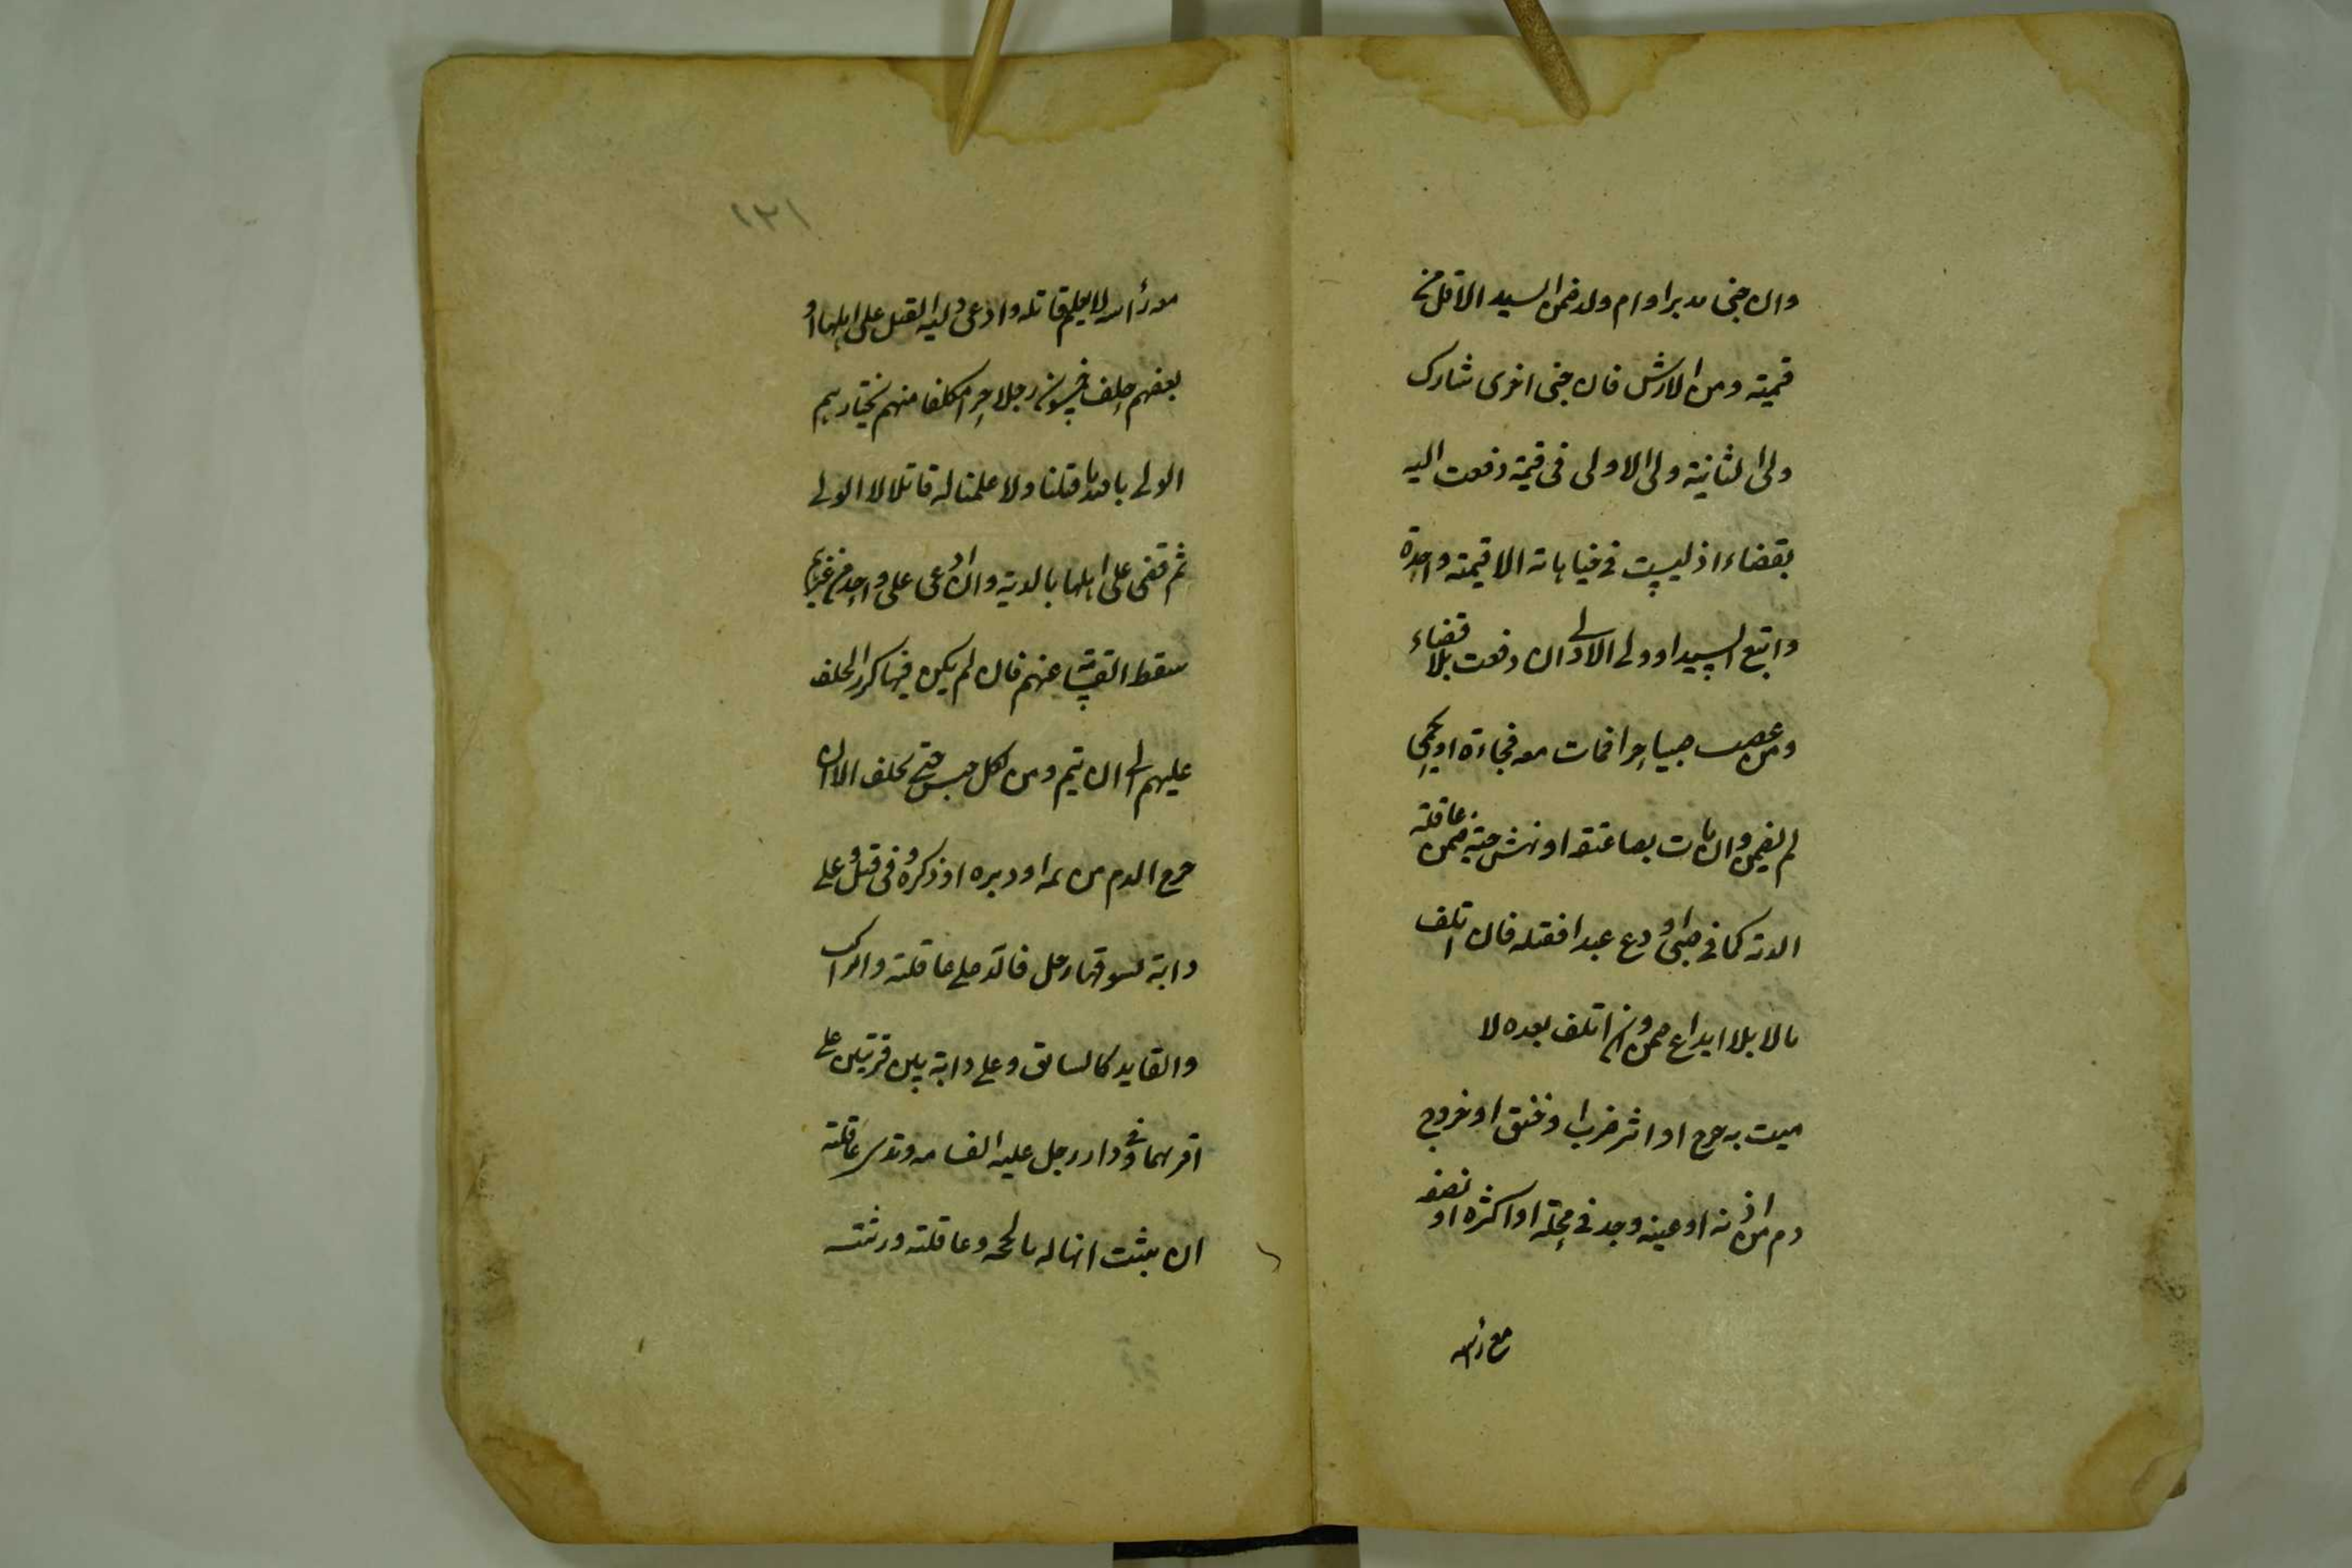 وان جنى مدبر او ام ولد ضمن السيد الاقل من
قيمته ومن الارش فان جنى اخرى شارك
ولى الثانية ولى الاولى فى قيمة دفعت اليه
بقضاء اذ ليست فى جناياته الا قيمة واحدة
واتبع السيد او ولى الاولى ان دفعت بلا قضاء
ومن غصب صبيا حرا فمات معه فجاءة او بحمى
لم يضمن وان مات بصاعقة او نهش حية ضمن عاقلته
الدية كما فى صبى اودع عبدا فقتله فان اتلف
مالا بلا ايداع ضمن وان اتلف بعده لا
ميت به جرح او اثر ضرب او خنق او خروج
دم من اذنه او عينه وجد فى محلة او اكثره او نصفه
مع رأسه
١٢١
مع رأسه لا يعلم قاتله وادعى وليه القتل على اهلها او
بعضهم حلف خمسون رجلا حرا مكلفا منهم يختارهم
الولى بالله ما قتلنا ولا علمنا له قاتلا لا الولى
ثم قضى على اهلها بالدية وان ادعى على واحد من غيرهم
سقط القسامة عنهم فان لم يكن فيها كرر الحلف
عليهم الى ان يتم ومن نكل حبس حتى يحلف الا ان
خرج الدم من فمه او دبره او ذكره وفى قتيل على
دابة يسوقها رجل فالدية على عاقلته والراكب
والقايد كالسائق وعلى دابة بين قريتين على
اقربهما وفى دار رجل عليه القسامة وتدى عاقلته
ان يثبت انها له بالحجة وعاقلته ورثته